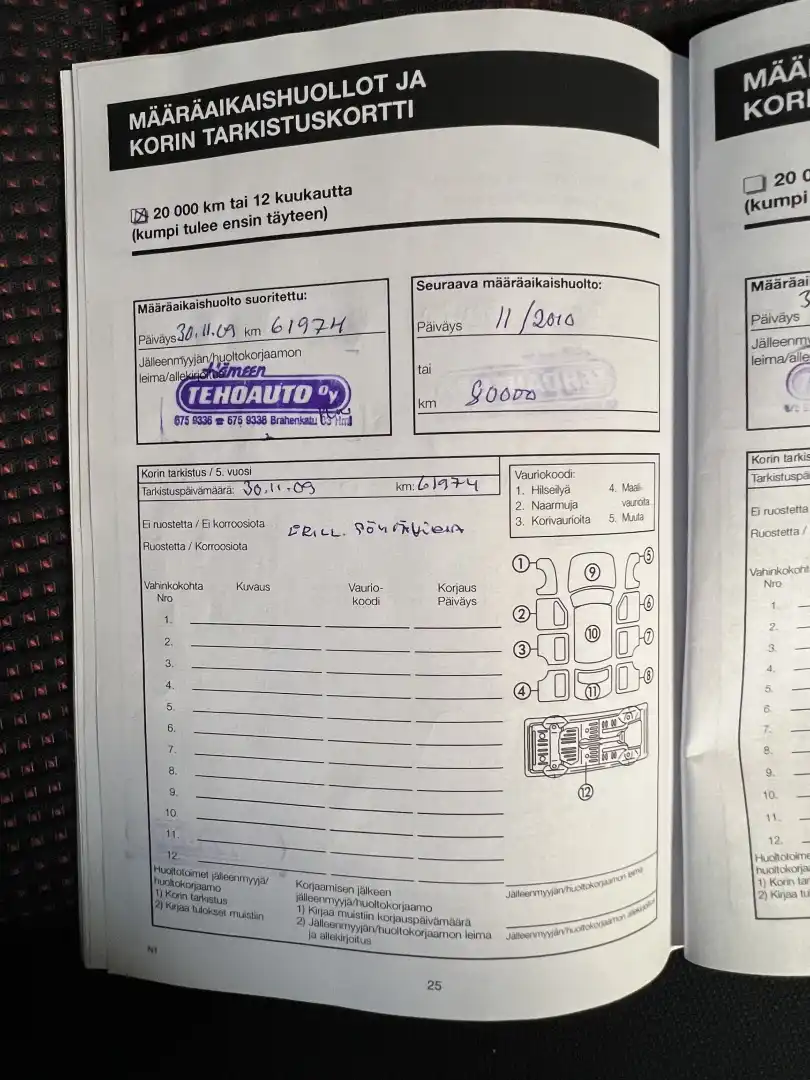 MÄÄRÄAIKAISHUOLLOT JA
KORIN TARKISTUSKORTTI
20 000 km tai 12 kuukautta
(kumpi tulee ensin täyteen)
Määräaikaishuolto suoritettu:
Päiväys 30.11.09 km 61974
Jälleenmyyjän/huoltokorjaamon
leima/allekirjoitus
Hämeen
TEHOAUTO Oy
675 9336 ☎ 675 9336 Brahenkatu
Seuraava määräaikaishuolto:
Päiväys 11/2010
tai
km 80000
Korin tarkistus / 5. vuosi
Tarkistuspäivämäärä: 30.11.09 km: 61974
Ei ruostetta / Ei korroosiota
Ruostetta / Korroosiota
Vauriokoodi:
1. Hilseilyä
2. Naarmuja
3. Korivaurioita
4. Maali-
vaurioita
5. Muuta
Vahinkokohta
Nro
Kuvaus
Vaurio-
koodi
Korjaus
Päiväys
1.
2.
3.
4.
5.
6.
7.
8.
9.
10.
11.
12.
1
2
3
4
5
6
7
8
9
10
11
12
Huoltotoimet jälleenmyyjä/
huoltokorjaamo
1) Korin tarkistus
2) Kirjaa tulokset muistiin
Korjaamisen jälkeen
jälleenmyyjä/huoltokorjaamo
1) Kirjaa muistiin korjauspäivämäärä
2) Jälleenmyyjän/huoltokorjaamon leima
ja allekirjoitus
Jälleenmyyjän/huoltokorjaamon leima
Jälleenmyyjän/huoltokorjaamon allekirjoitus
N1
25
MÄÄ
KOR
20 0
(kumpi
Määräai
Päiväys 3
Jälleenmy
leima/alle
Korin tarkis
Tarkistuspä
Ei ruostetta
Ruostetta /
Vahinkokoht
Nro
1.
2.
3.
4.
5.
6.
7.
8.
9.
10.
11.
12.
Huoltotoime
huoltokorja
1) Korin tar
2) Kirjaa tul